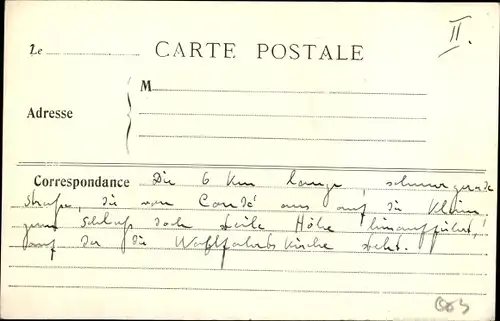 II.
Le
CARTE POSTALE
M
Adresse
Correspondance Die 6 km lange, schnurgerade
Straße, die von Condé aus auf die kleine,
zum Schluß doch steile Höhe hinaufführt,
auf der die Wallfahrtskirche steht.